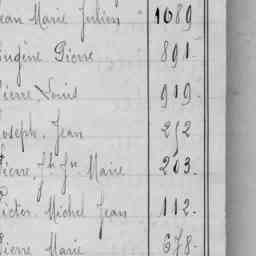 Jean Marie Julien 1089
Eugène Pierre 891
Pierre Louis 919.
Joseph Jean 252
Pierre Jh Jn Marie 263.
Victor Michel Jean 112.
Pierre Marie 678.